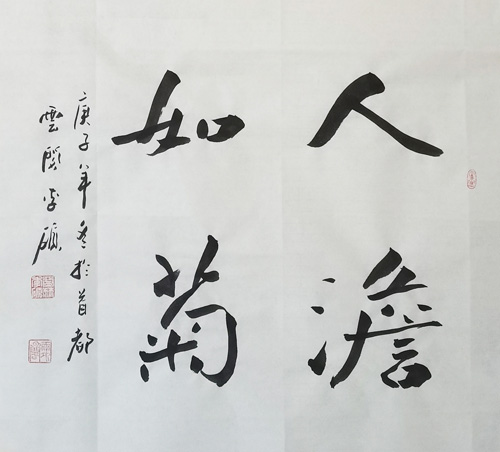 人澹
如菊
庚子年冬於首都
雲閣李